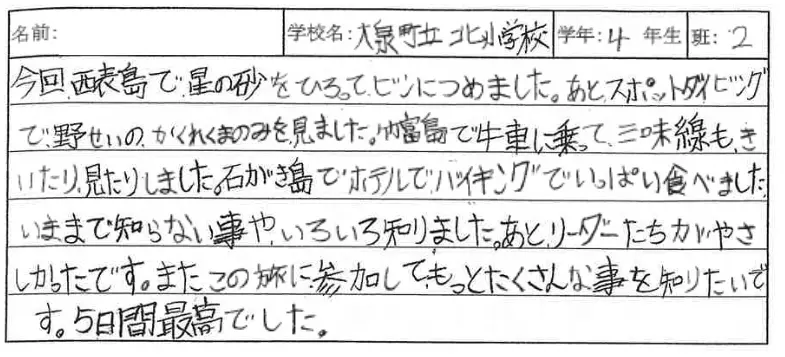 名前: 学校名: 大泉町立 北小学校 学年: 4 年生 班: 2
今回、西表島で、星の砂をひろって、ビンにつめました。あと、スポットダイビング
で、野せいの、かくれくまのみを、見ました。竹富島で牛車に乗って、三味線も、き
いたり、見たりしました。石がき島でホテルでバイキングでいっぱい食べました。
いままで知らない事や、いろいろ知りました。あと、リーダーたちがやさ
しかったです。またこの旅に、参加して、もっとたくさんな事を知りたいで
す。5日間最高でした。